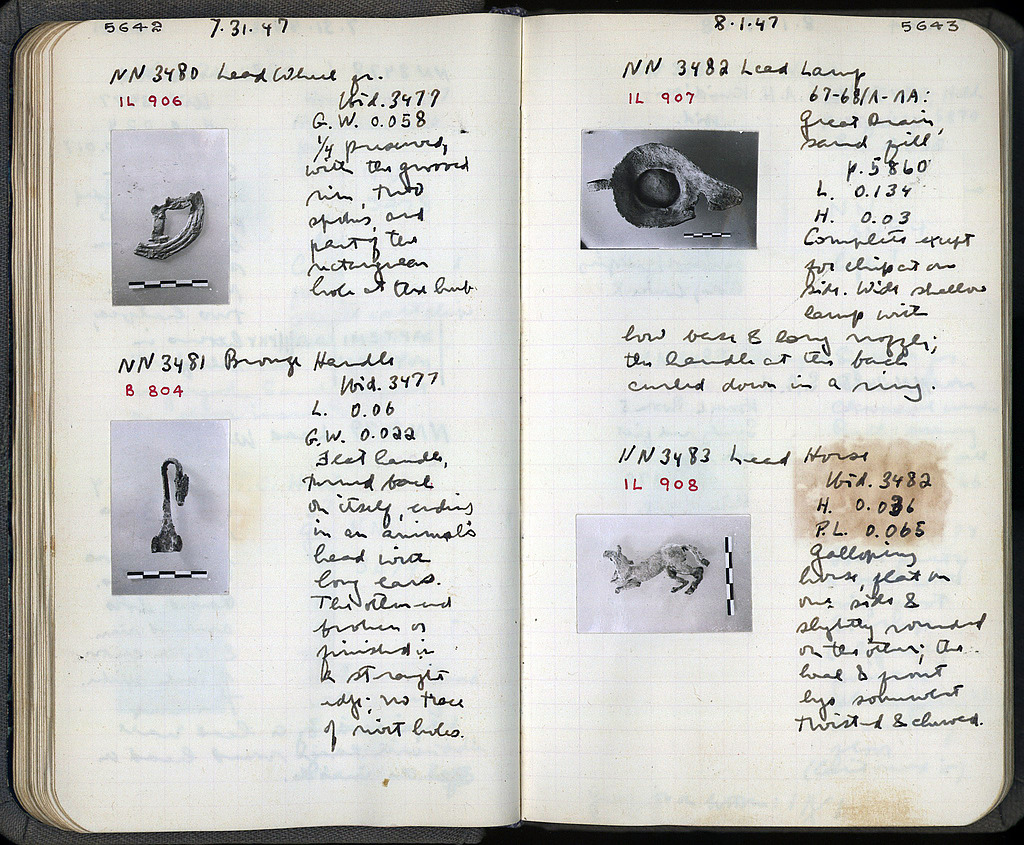 5642 7.31.47
NN 3480 Lead Wheel fr.
IL 906
Ibid. 3477
G.W. 0.058
1/4 preserved,
with the grooved
rim, two
spokes, and
part of the
rectangular
hole at the hub
NN 3481 Bronze Handle
B 804
Ibid. 3477
L. 0.06
G.W. 0.022
Flat handle,
turned back
on itself, ending
in an animal's
head with
long ears.
The other end
broken or
finished in
a straight
edge; no trace
of rivet holes.
8.1.47 5643
NN 3482 Lead Lamp
IL 907
67-68/Λ-ΛΑ:
Great Drain,
sand fill
p. 5860
L. 0.134
H. 0.03
Complete except
for chip at one
side. Wide shallow
lamp with
low base & long nozzle;
the handle at the back
curled down in a ring.
NN 3483 Lead Horse
IL 908
Ibid. 3482
H. 0.036
P.L. 0.065
Galloping
horse, flat on
one side &
slightly rounded
on the other; the
head & front
legs somewhat
twisted & chewed.